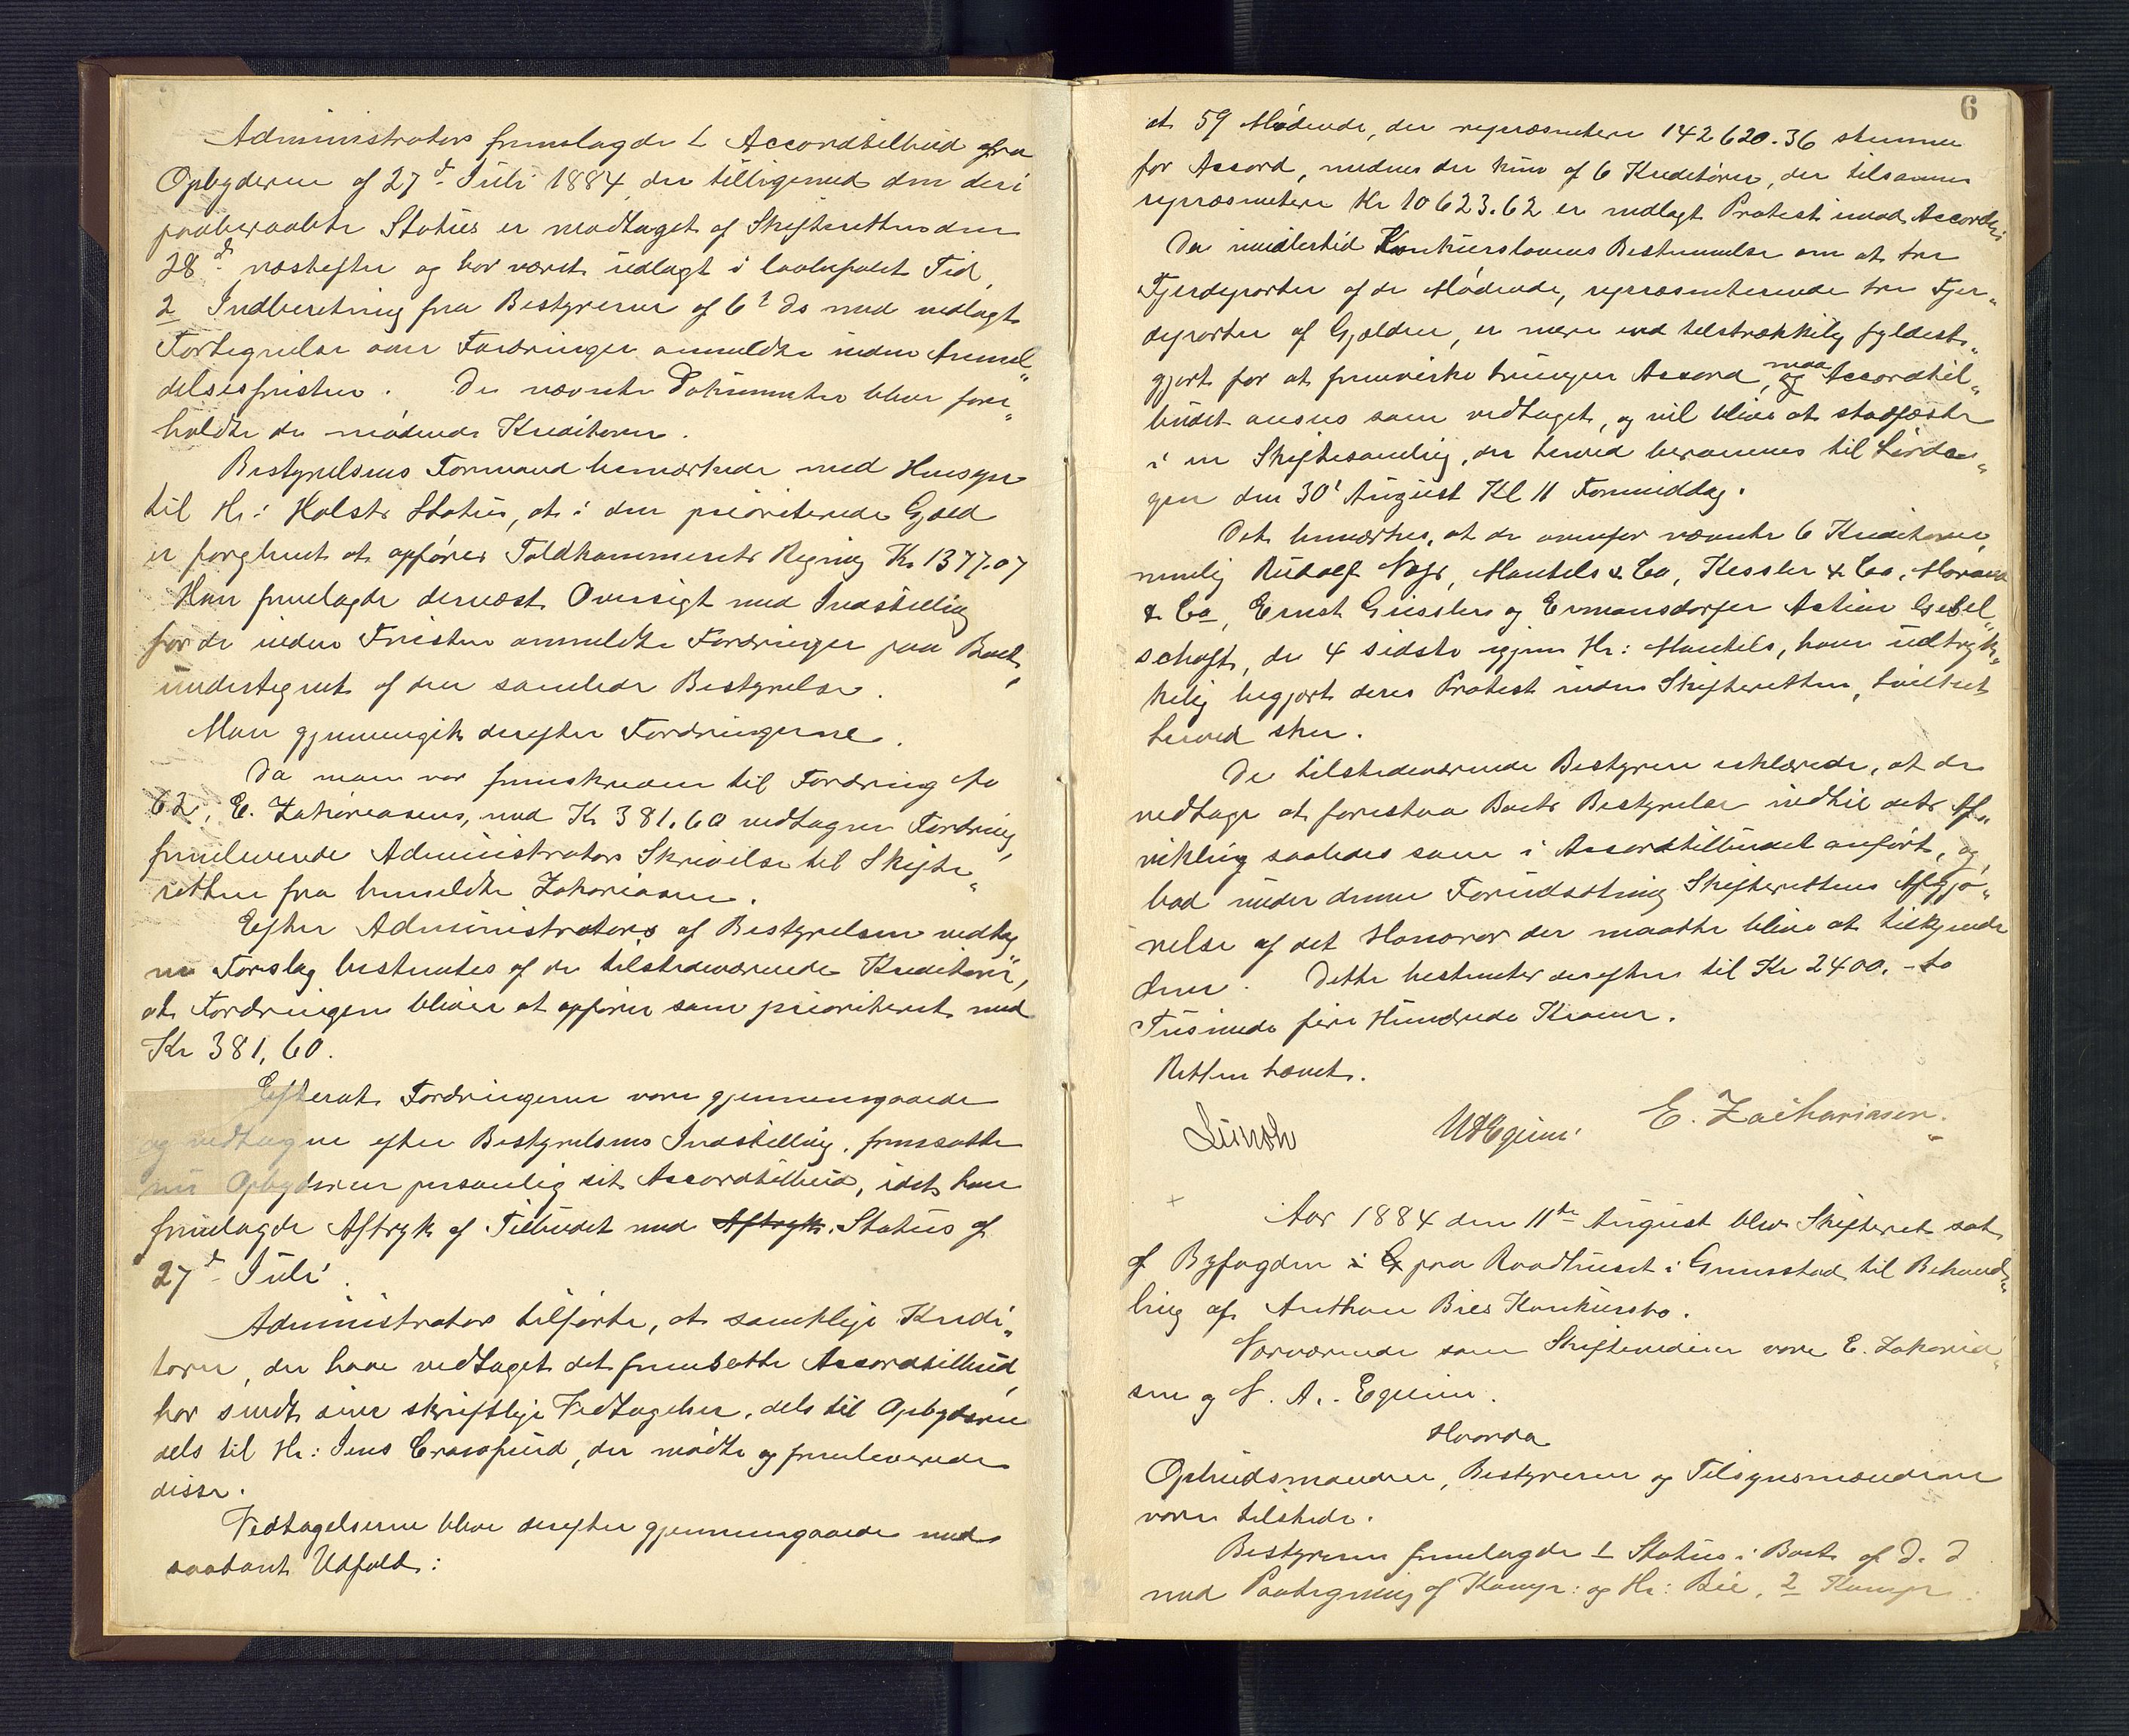 Administrator fremlagde 1 Accordtilbud fra
Opbyderen af 27d Juli 1884, der tilligemed den deri
paaberaabte Status er modtaget af Skifteretten den
28d næstefter og har været udlagt i lovbefalet Tid,
2 Indberetning fra Bestyrerne af 6t ds med vedlagt
Fortegnelse over Fordringer anmeldte inden Anmel„
delsesfristen. De nævnte Dokumenter blev fore„
holdte de mødende Kreditorer.
Bestyrelsens Formand bemærkede med Hensyn
til Hr: Holsts Status, at i den prioriterede Gjæld
er forglemt at opføres Toldkammerets Regning Kr 1377.07
Han fremlagde dernæst Oversigt med Indstilling
for de inden Fristen anmeldte Fordringer paa Boet,
undertegnet af den samlede Bestyrelse.
Man gjennemgik derefter Fordringerne.
Da man var fremskreden til Fordring No
62, E. Zakariasens, med Kr 381.60 vedtagen Fordring,
fremleverede Administrator Skrivelse til Skifte„
retten fra bemeldte Zakariasen.
Efter Administrators af Bestyrelsen vedtag
ne Forslag bestemtes af de tilstedeværende Kreditorer,
at Fordringen bliver at opføre som prioriteret med
Kr 381,60.
Efterat Fordringerne vare gjennemgaaede
og vedtagne efter Bestyrelsens Indstilling, fremsatte
nu Opbyderen personlig sit Accordtilbud, idet han
fremlagde Aftryk af Tilbudet med Aftryk. Status af
27d Juli.
Administrator tilførte, at samtlige Kredi„
torer, der have vedtaget det fremsatte Accordtilbud,
har sendt sine skriftlige Vedtagelser, dels til Opbyderen
dels til Hr: Jens Crawfurd, der mødte og fremleverede
disse.
Vedtagelserne blev derefter gjennemgaaede med
saadant Udfald:
6
at 59 Mødende, der repræsentere 142620.36 stemme
for Accord, medens der kun af 6 Kreditorer, der tilsammen
repræsentere Kr 10623.62 er nedlagt Protest imod Accorden
Da imidlertid Konkurslovens Bestemmelse om at tre
Fjerdeparter af de Mødende, repræsenterende tre Fjer„
departer af Gjælden, er mere end tilstrækkelig fyldest„
gjort for at fremvirke tvungen Accord, og maa Accordtil„
budet ansees som vedtaget, og vil blive at stadfæste
i en Skiftesamling, der herved berammes til Lørda„
gen den 30t August Kl 11 Formiddag.
Det bemærkes, at de ovenfor nævnte 6 Kreditorer,
nemlig Rudolf Mantels & Co, Kessler & Co,
& Co, Ernst Geissler og Ermansdorfer Actien Gesel„
schaft, de 4 sidste gjen Hr: Mantels, have udtryk„
kelig begjært deres Protest inden Skifteretten, hvilket
herved sker.
De tilstedeværende Bestyrere erklærede, at de
vedtage at forestaa Boets Bestyrelse indtil dets Af„
vikling saaledes som i Accordtilbudet anført, og
bad under denne Forudsætning Skifterettens Afgjø„
relse af det Honorar der maatte blive at tilkjende
dem. Dette bestemtes derefter til Kr 2400. - to
Tusinde fire Hundrede Kroner.
Retten hævet.
E. Zachariasen.
Aar 1884 den 11te August blev Skifteret sat
af Byfogden i G paa Raadhuset i Grimstad til Behand„
ling af Anthon Bies Konkursbo.
Nærværende som Skiftevidner vare E. Zakaria„
sen og N. A. Egeme.
Hvorda
Opbudsmanden, Bestyrerne og Tilsynsmændene
vare tilstede.
Bestyreren fremlagde 1 Status i Boet af D. D
med Paategning af Kompr: og Hr: Bie, 2 Kompr